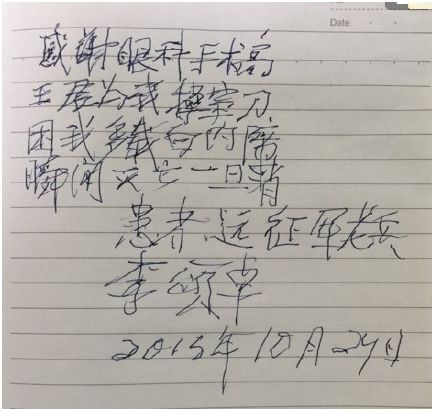 Date
感谢眼科手术高
王君为我操宗刀
困我多载白内障
瞬间灭亡一旦消
患者远征军老兵
李颂卓
2015年10月29日